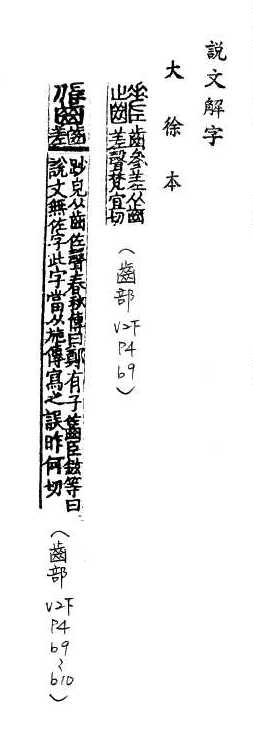 說文解字
大徐本
齒參差从齒
差聲楚宜切
(齒部 V2下 P4 b9)
齒差
跌皃从齒佐聲春秋傳曰鄭有子臣鉉等曰
說文無佐字此字當从傳寫之誤昨何切
(齒部 V2下 P4 b9~b10)